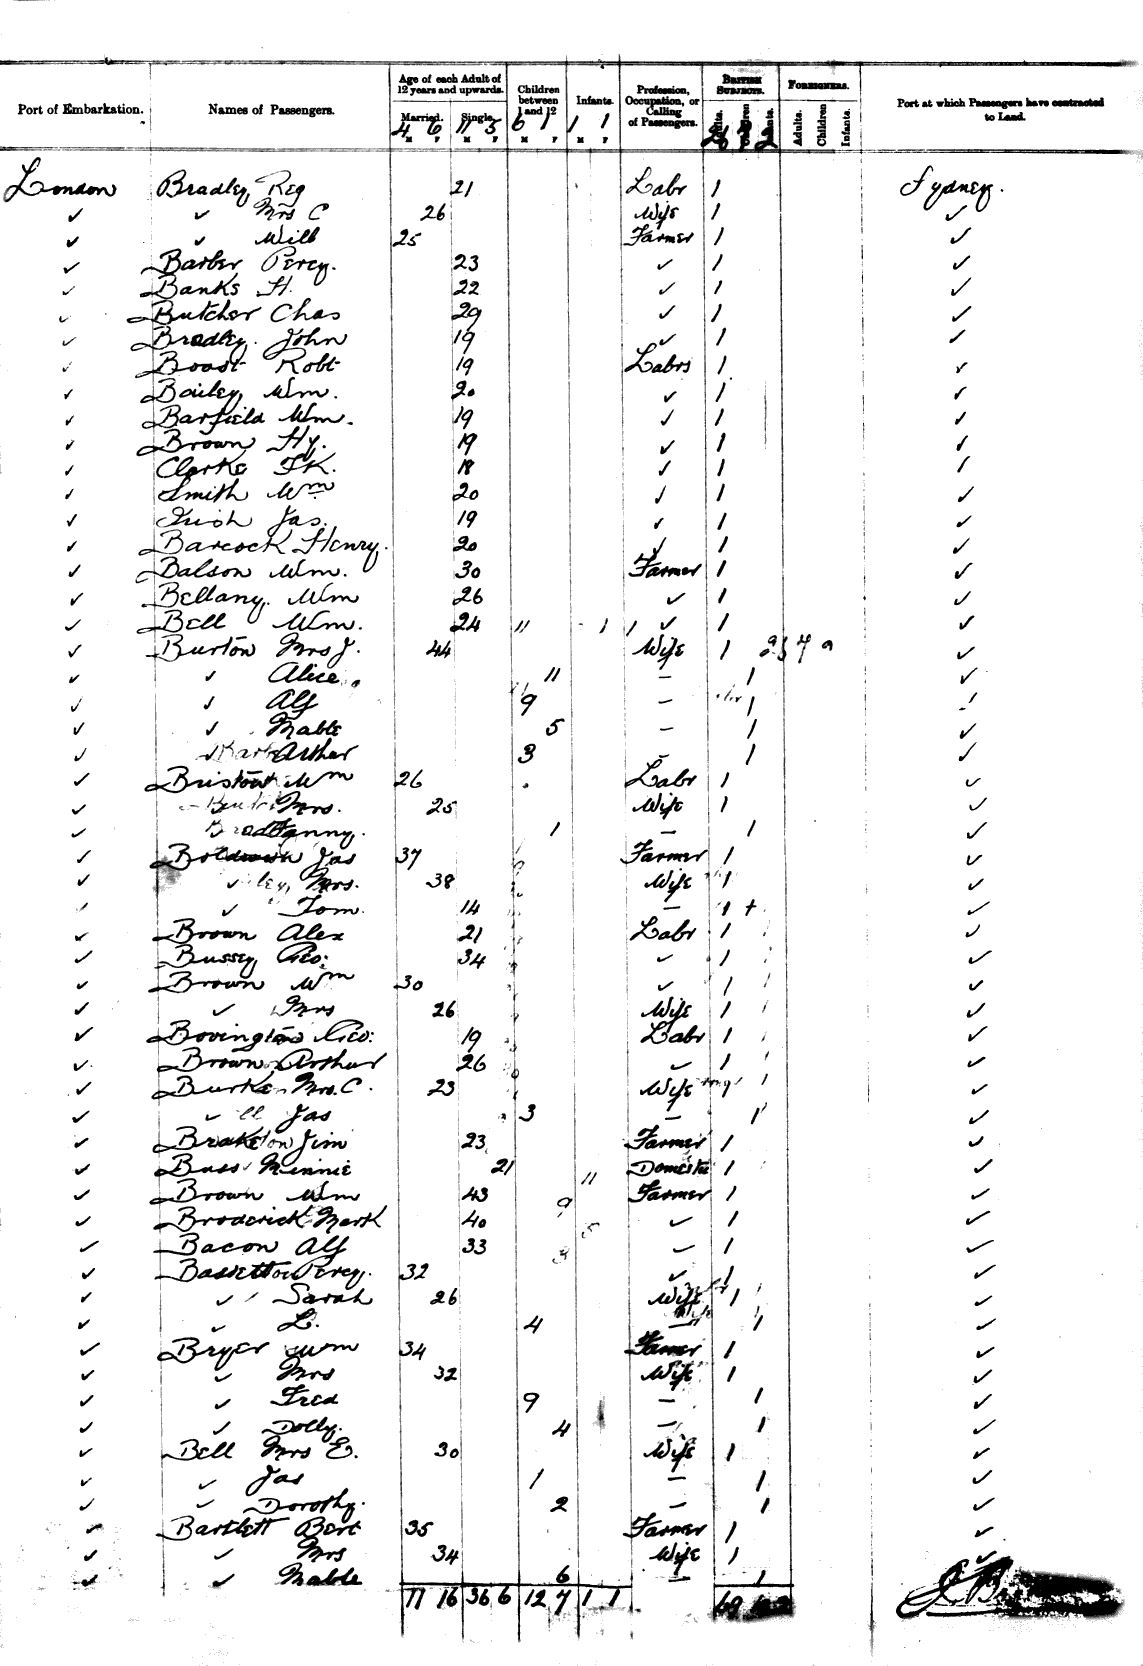 Port of Embarkation. Names of Passengers. Age of each Adult of 12 years and upwards. Children between 1 and 12 Infants. Profession, Occupation, or Calling of Passengers. BRITISH SUBJECTS. FOREIGNERS. Port at which Passengers have contracted to Land.
Married. Single. Adults. Children Infants. Adults. Children Infants.
M F M F M F M F
4 6 11 5 6 1 1 1 26 7 2
London Bradley Reg 21 Labr 1 Sydney.
✓ ✓ Mrs C 26 Wife 1 ✓
✓ ✓ Will 25 Farmer 1 ✓
✓ Barber Percy. 23 ✓ 1 ✓
✓ Banks H. 22 ✓ 1 ✓
✓ Butcher Chas 29 ✓ 1 ✓
✓ Bradley. John 19 ✓ 1 ✓
✓ Boast Robt 19 Labrs 1 ✓
✓ Bailey Wm. 20 ✓ 1 ✓
✓ Barfield Wm. 19 ✓ 1 ✓
✓ Brown Hy. 19 ✓ 1 ✓
✓ Clarke FK. 18 ✓ 1 ✓
✓ Smith Wm 20 ✓ 1 ✓
✓ Irish Jas. 19 ✓ 1 ✓
✓ Barcock Henry. 20 ✓ 1 ✓
✓ Balson Wm. 30 Farmer 1 ✓
✓ Bellany. Wm 26 ✓ 1 ✓
✓ Bell Wm. 24 ✓ 1 ✓
✓ Burton Mrs J. 44 Wife 1 ✓
✓ ✓ Alice. 11 — 1 ✓
✓ ✓ Alf 9 — 1 ✓
✓ ✓ Mable 5 — 1 ✓
✓ ✓ Arthur 3 — 1 ✓
✓ Bristow Wm 26 Labr 1 ✓
✓ Mrs. 25 Wife 1 ✓
✓ Fanny. 1 — 1 ✓
✓ Jas 37 Farmer 1 ✓
✓ ✓ Mrs. 38 Wife 1 ✓
✓ ✓ Tom. 14 — 1 + ✓
✓ Brown Alex 21 Labr 1 ✓
✓ Bussey Geo: 34 ✓ 1 ✓
✓ Brown Wm 30 ✓ 1 ✓
✓ ✓ Mrs 26 Wife 1 ✓
✓ Bovington Geo: 19 Labr 1 ✓
✓ Brown Arthur 26 ✓ 1 ✓
✓ Burke Mrs. C. 23 Wife 1 ✓
✓ ✓ Jas 3 — 1 ✓
✓ Jim 23 Farmer 1 ✓
✓ Buss Minnie 21 Domestic 1 ✓
✓ Brown Wm 43 Farmer 1 ✓
✓ Broderick Mark 40 ✓ 1 ✓
✓ Bacon Alf 33 ✓ 1 ✓
✓ Percy. 32 ✓ 1 ✓
✓ ✓ Sarah 26 Wife 1 ✓
✓ ✓ L. 4 — 1 ✓
✓ Bryer Wm 34 Farmer 1 ✓
✓ ✓ Mrs 32 Wife 1 ✓
✓ ✓ Fred 9 — 1 ✓
✓ ✓ Dolly. 4 — 1 ✓
✓ Bell Mrs E. 30 Wife 1 ✓
✓ ✓ Jas 1 — 1 ✓
✓ ✓ Dorothy. 2 — 1 ✓
✓ Bartlett Bert 35 Farmer 1 ✓
✓ ✓ Mrs 34 Wife 1 ✓
✓ ✓ Mable 6 — 1 ✓
11 16 36 6 12 7 1 1 69